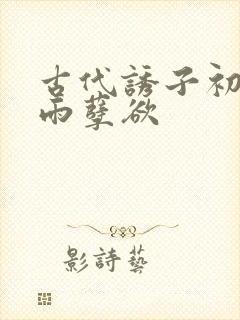 古代誘子初
雨孽欲
影詩藝